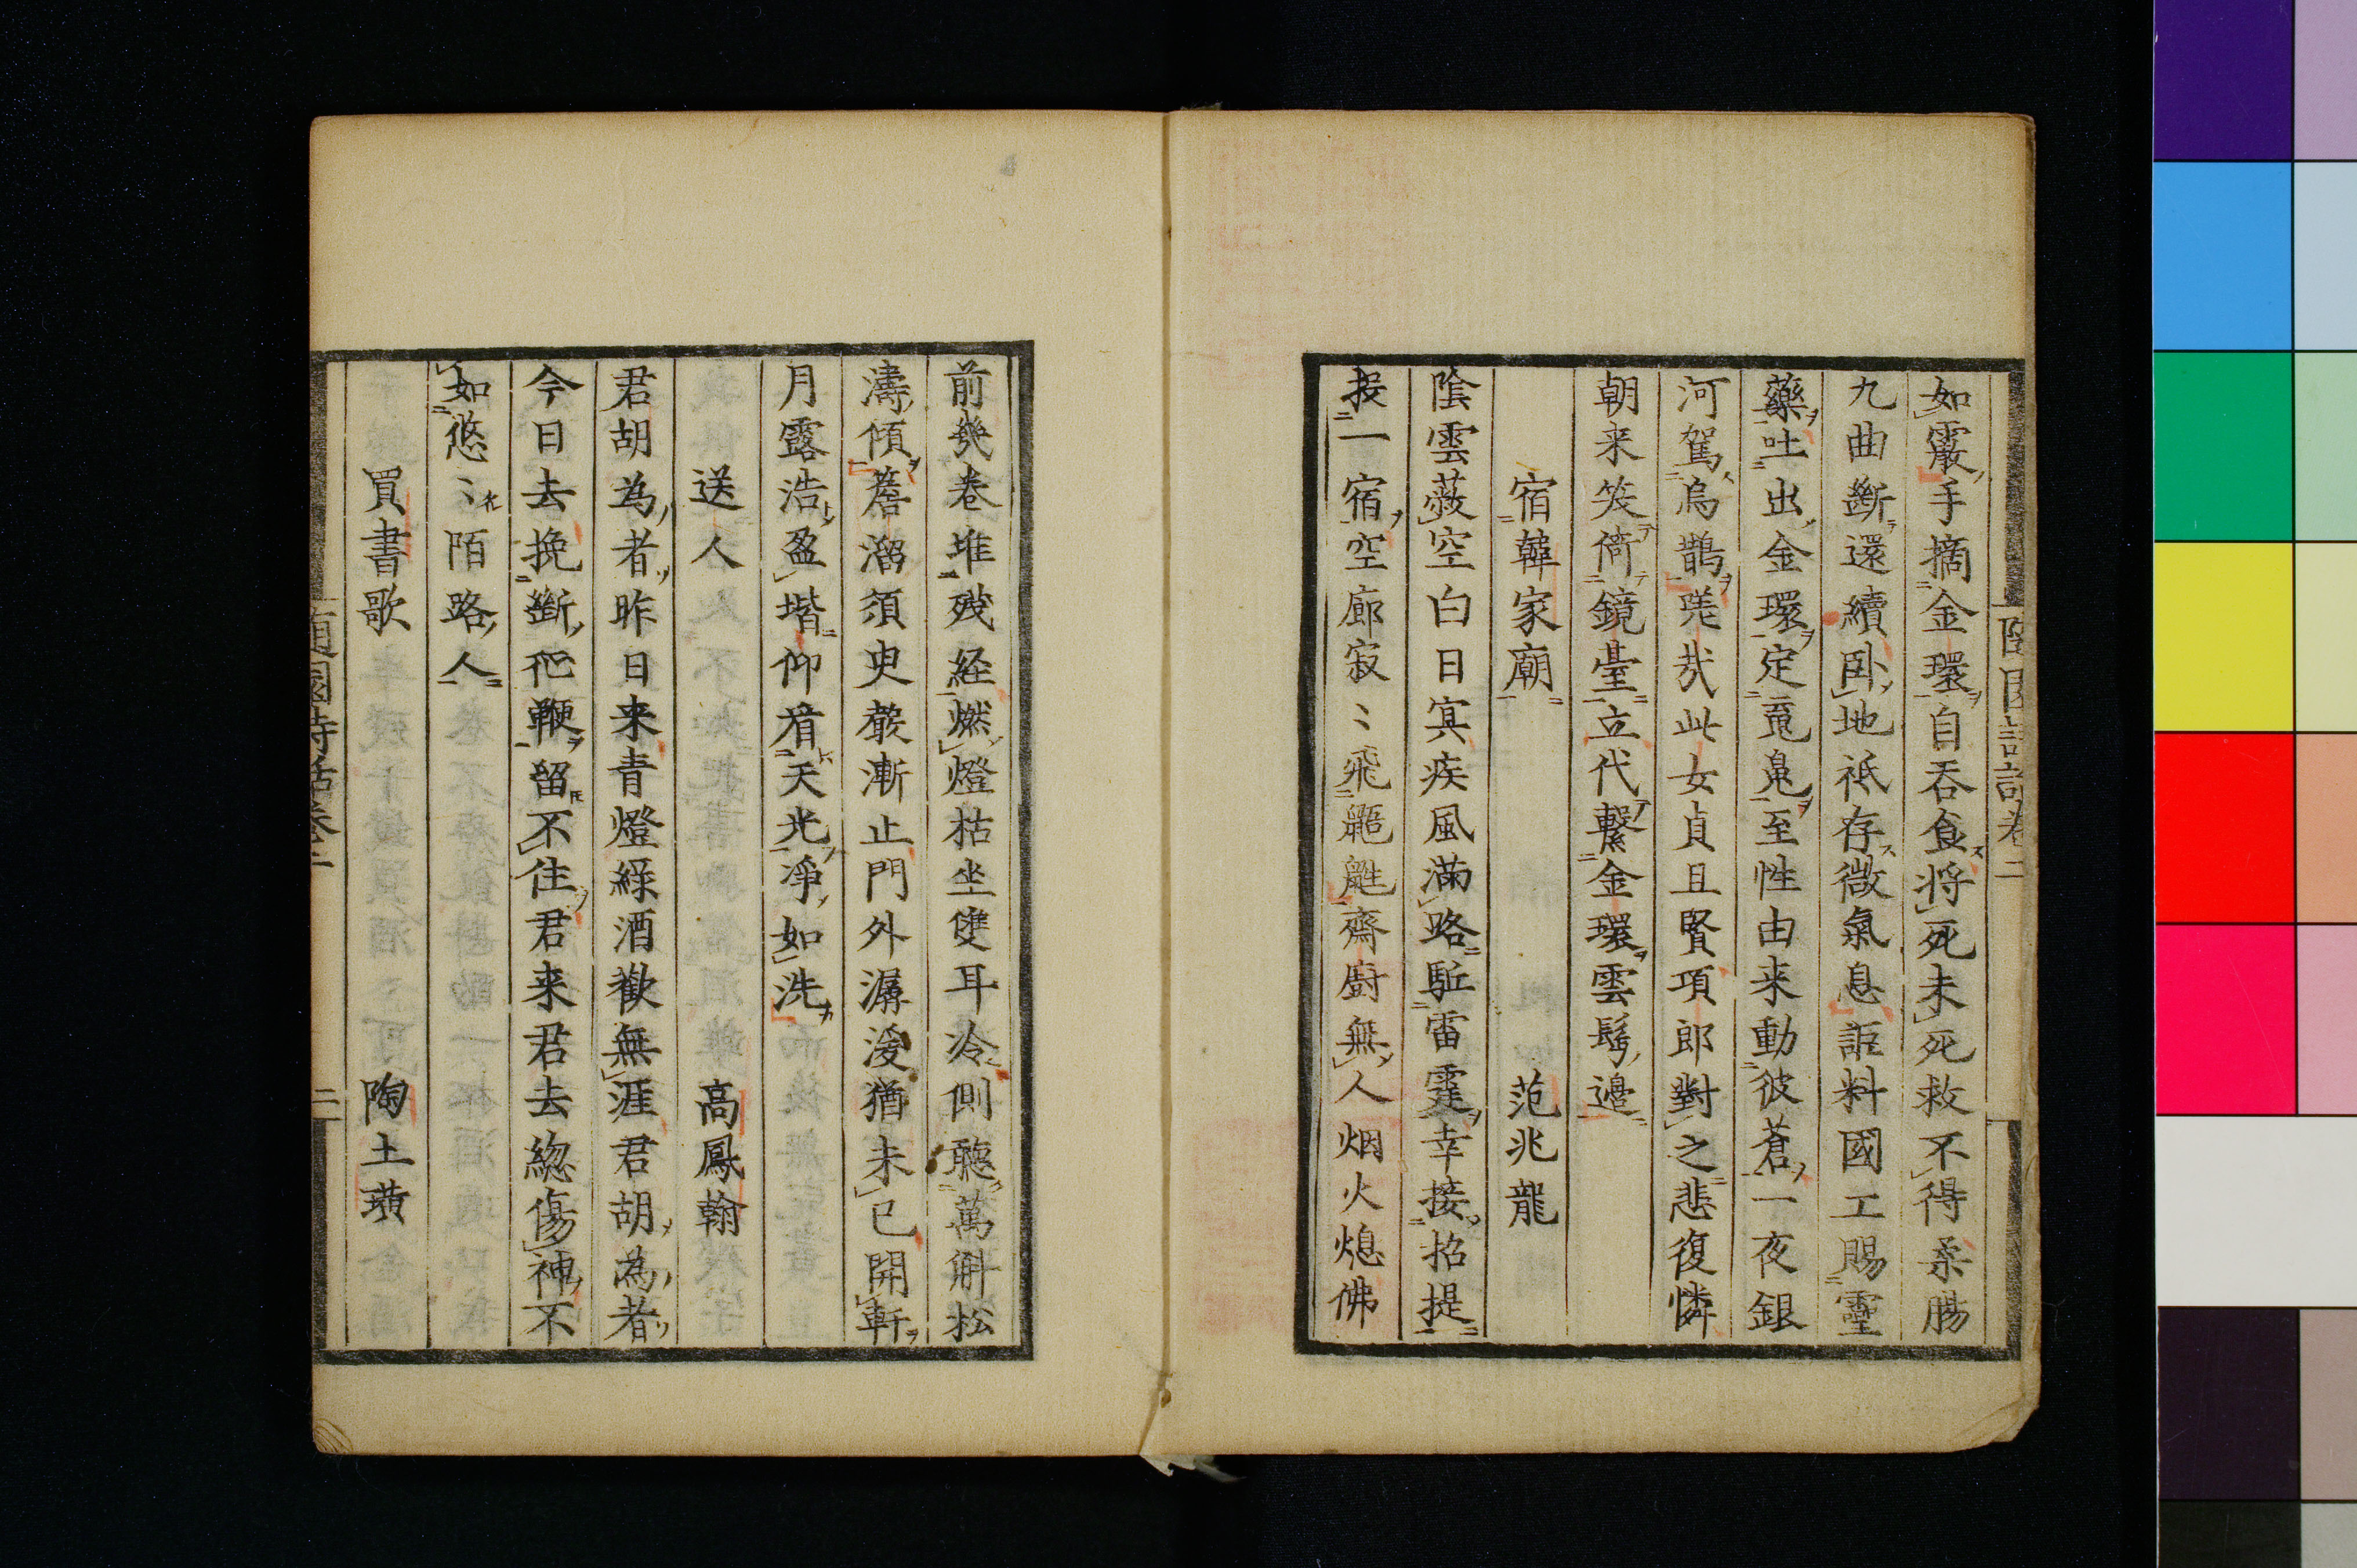 如霰手摘金環自吞食将死未死救不得柔腸
九曲斷還續卧地祗存微氣息詎料國工賜靈
藥吐出金環定䰟鳬至性由来動彼蒼一夜銀
河駕烏鵲嗟㢤此女貞且賢項郎對之悲復憐
朝来笑倚鏡臺立代繫金環雲髩邊
宿韓家廟 范兆龍
陰雲蔽空白日寘疾風滿路駈雷霆幸接招提
投一宿空廊寂〻飛鼯鼪齋厨無人烟火熄佛
前幾卷堆殘経燃燈枯坐雙耳冷側聽萬斛松
濤傾簷溜須臾聲漸止門外潺湲猶未已開軒
月露浩盈堦仰看天光凈如洗
送人 高鳳翰
君胡為者昨日来青燈緑酒歡無涯君胡為者
今日去挽斷征鞭留不住君来君去緫傷神不
如悠〻陌路人
買書歌 陶土璜
随園詩話卷二
二